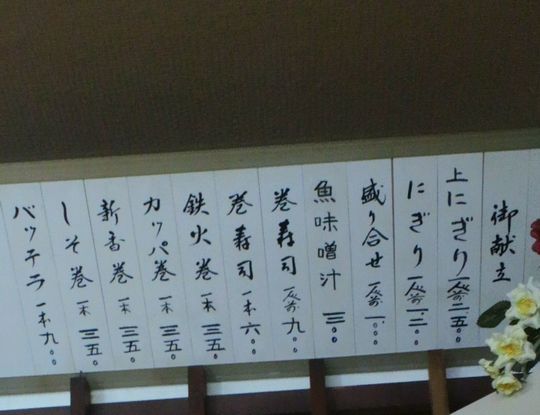 御献立
上にぎり 一人前 二.五〇〇
にぎり 一人前 一.三〇〇
盛り合せ 一人前 一.〇〇〇
魚味噌汁 三〇〇
巻寿司 一人前 九〇〇
巻寿司 一本 六〇〇
鉄火巻 一本 三五〇
カッパ巻 一本 三五〇
新香巻 一本 三五〇
しそ巻 一本 三五〇
バッテラ 一本 九〇〇